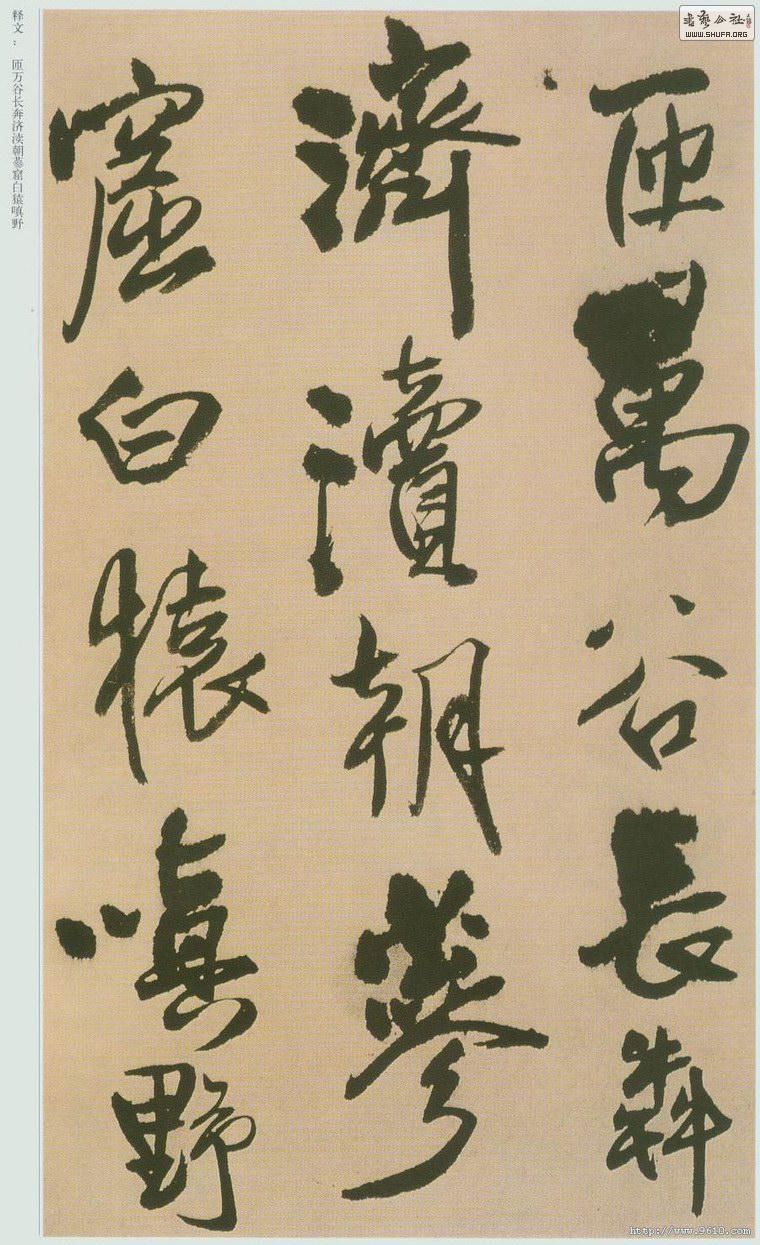 匝萬谷長犇
濟瀆朝蔘
窟白猿嗔野
释文：匝万谷长奔济渎朝蔘窟白猿嗔野
书艺公社
WWW.SHUFA.ORG
http://www.9610.com